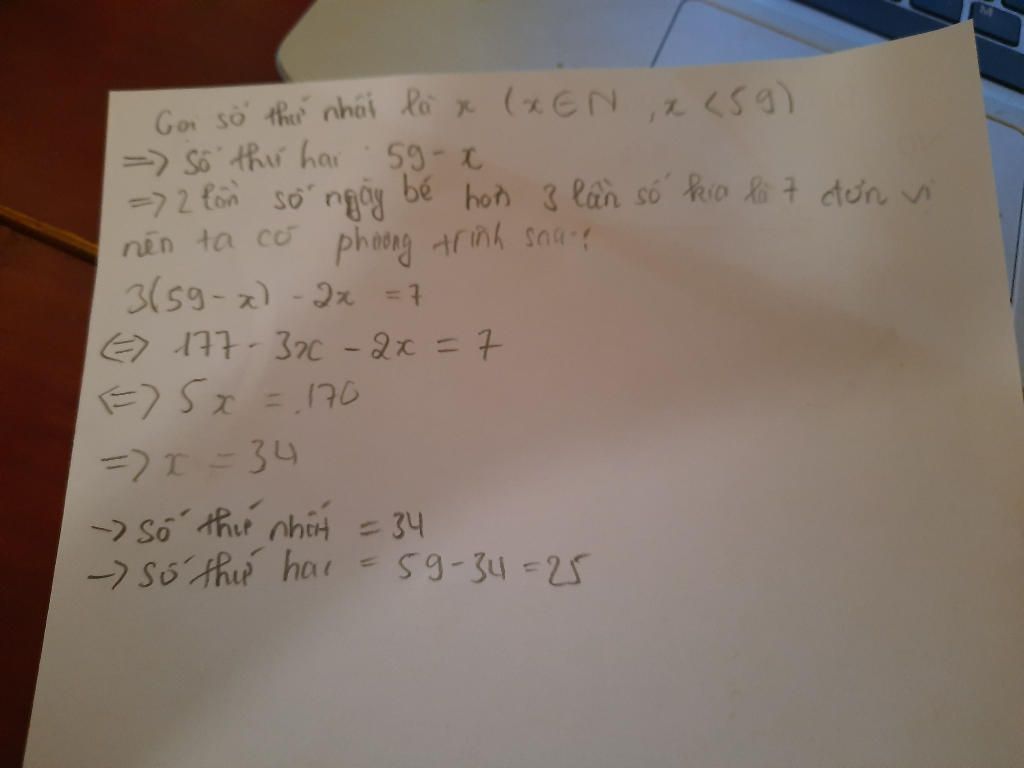 Gọi số thứ nhất là x (x ∈ N , x < 59)
=> số thứ hai : 59 - x
=> 2 lần số ngày bé hơn 3 lần số kia là 7 đơn vị
nên ta có phương trình sau :
3(59 - x) - 2x = 7
<=> 177 - 3x - 2x = 7
<=> 5x = 170
=> x = 34
-> số thứ nhất = 34
-> số thứ hai = 59 - 34 = 25